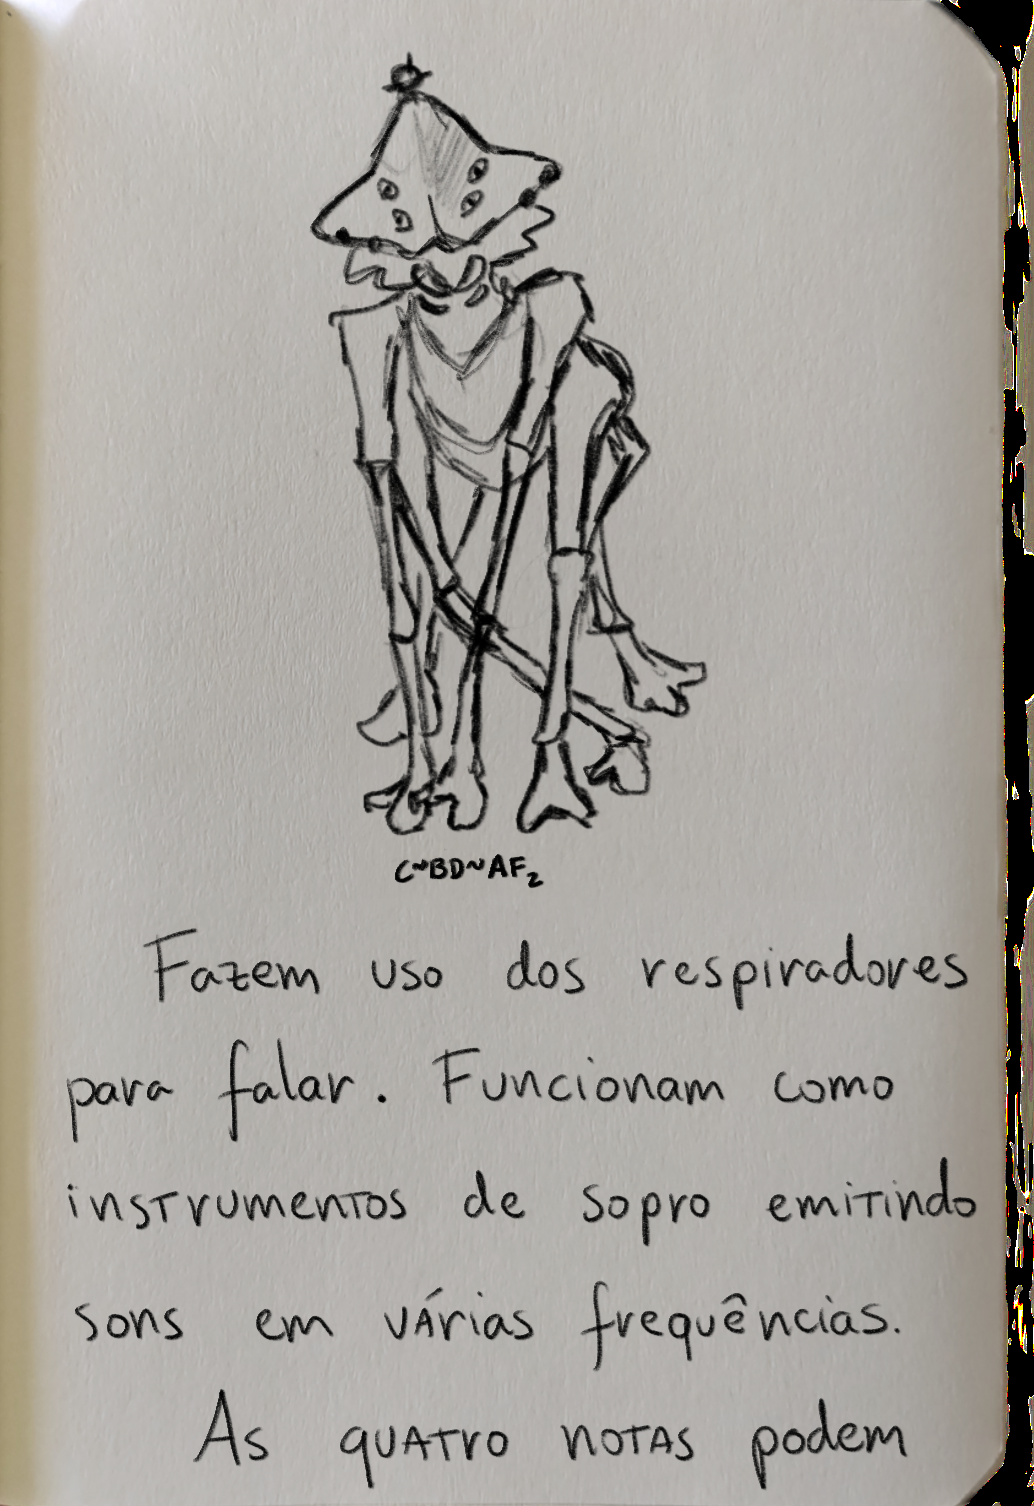 C~BD~AF₂
Fazem uso dos respiradores
para falar. Funcionam como
instrumentos de sopro emitindo
sons em várias frequências.
As quatro notas podem